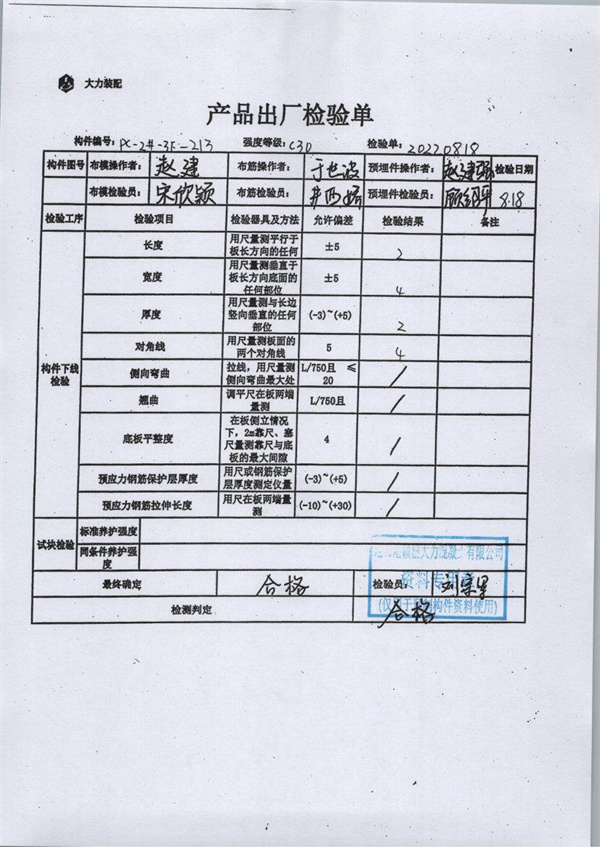 大力装配
产品出厂检验单
构件编号: PC-2#-3F-213 强度等级: C30 检验单: 20220818
构件图号 布模操作者: 赵建 布筋操作者: 于世波 预埋件操作者: 赵建强 检验日期
布模检验员: 宋欣颖 布筋检验员: 预埋件检验员: 8.18
检验工序 检验项目 检验器具及方法 允许偏差 检验结果 备注
构件下线检验
长度 用尺量测平行于板长方向的任何 ±5 2
宽度 用尺量测垂直于板长方向底面的任何部位 ±5 4
厚度 用尺量测与长边竖向垂直的任何部位 (-3)~(+5) 2
对角线 用尺量测板面的两个对角线 5 4
侧向弯曲 拉线，用尺量测侧向弯曲最大处 L/750且 ≤20 /
翘曲 调平尺在板两端量测 L/750且 /
底板平整度 在板侧立情况下，2m靠尺、塞尺量测靠尺与底板的最大间隙 4 /
预应力钢筋保护层厚度 用尺或钢筋保护层厚度测定仪量 (-3)~(+5) /
预应力钢筋拉伸长度 用尺在板两端量测 (-10)~(+30) /
试块检验 标准养护强度
同条件养护强度
最终确定 合格 检验员:
检测判定 合格
大力 有限公司
资料专用
构件资料使用)